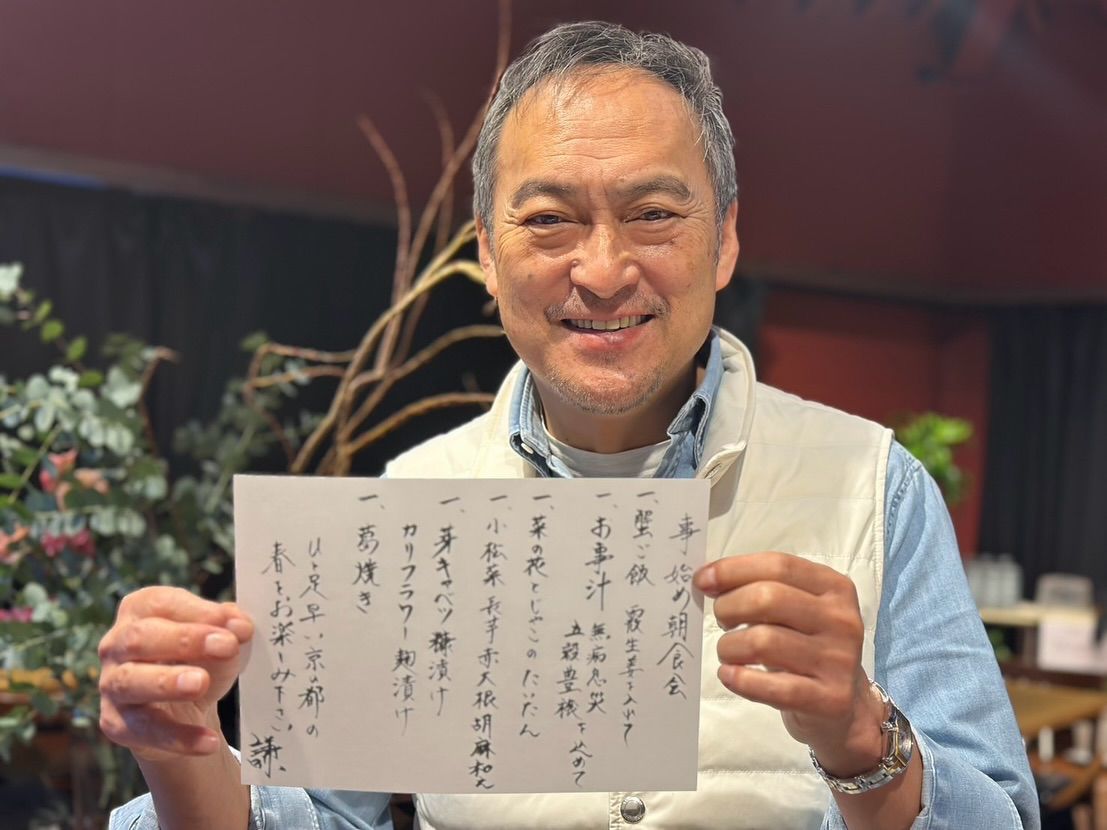 事始め朝食会
一、蟹ご飯 霞生姜を入れて
一、お事汁 無病息災
五穀豊穣を込めて
一、菜の花とじゃこのたいたん
一、小松菜長芋赤大根胡麻和え
一、芽キャベツ糠漬け
カリフラワー麹漬け
一、葛焼き
ひと足早い京の都の
春をお楽しみ下さい
謙、